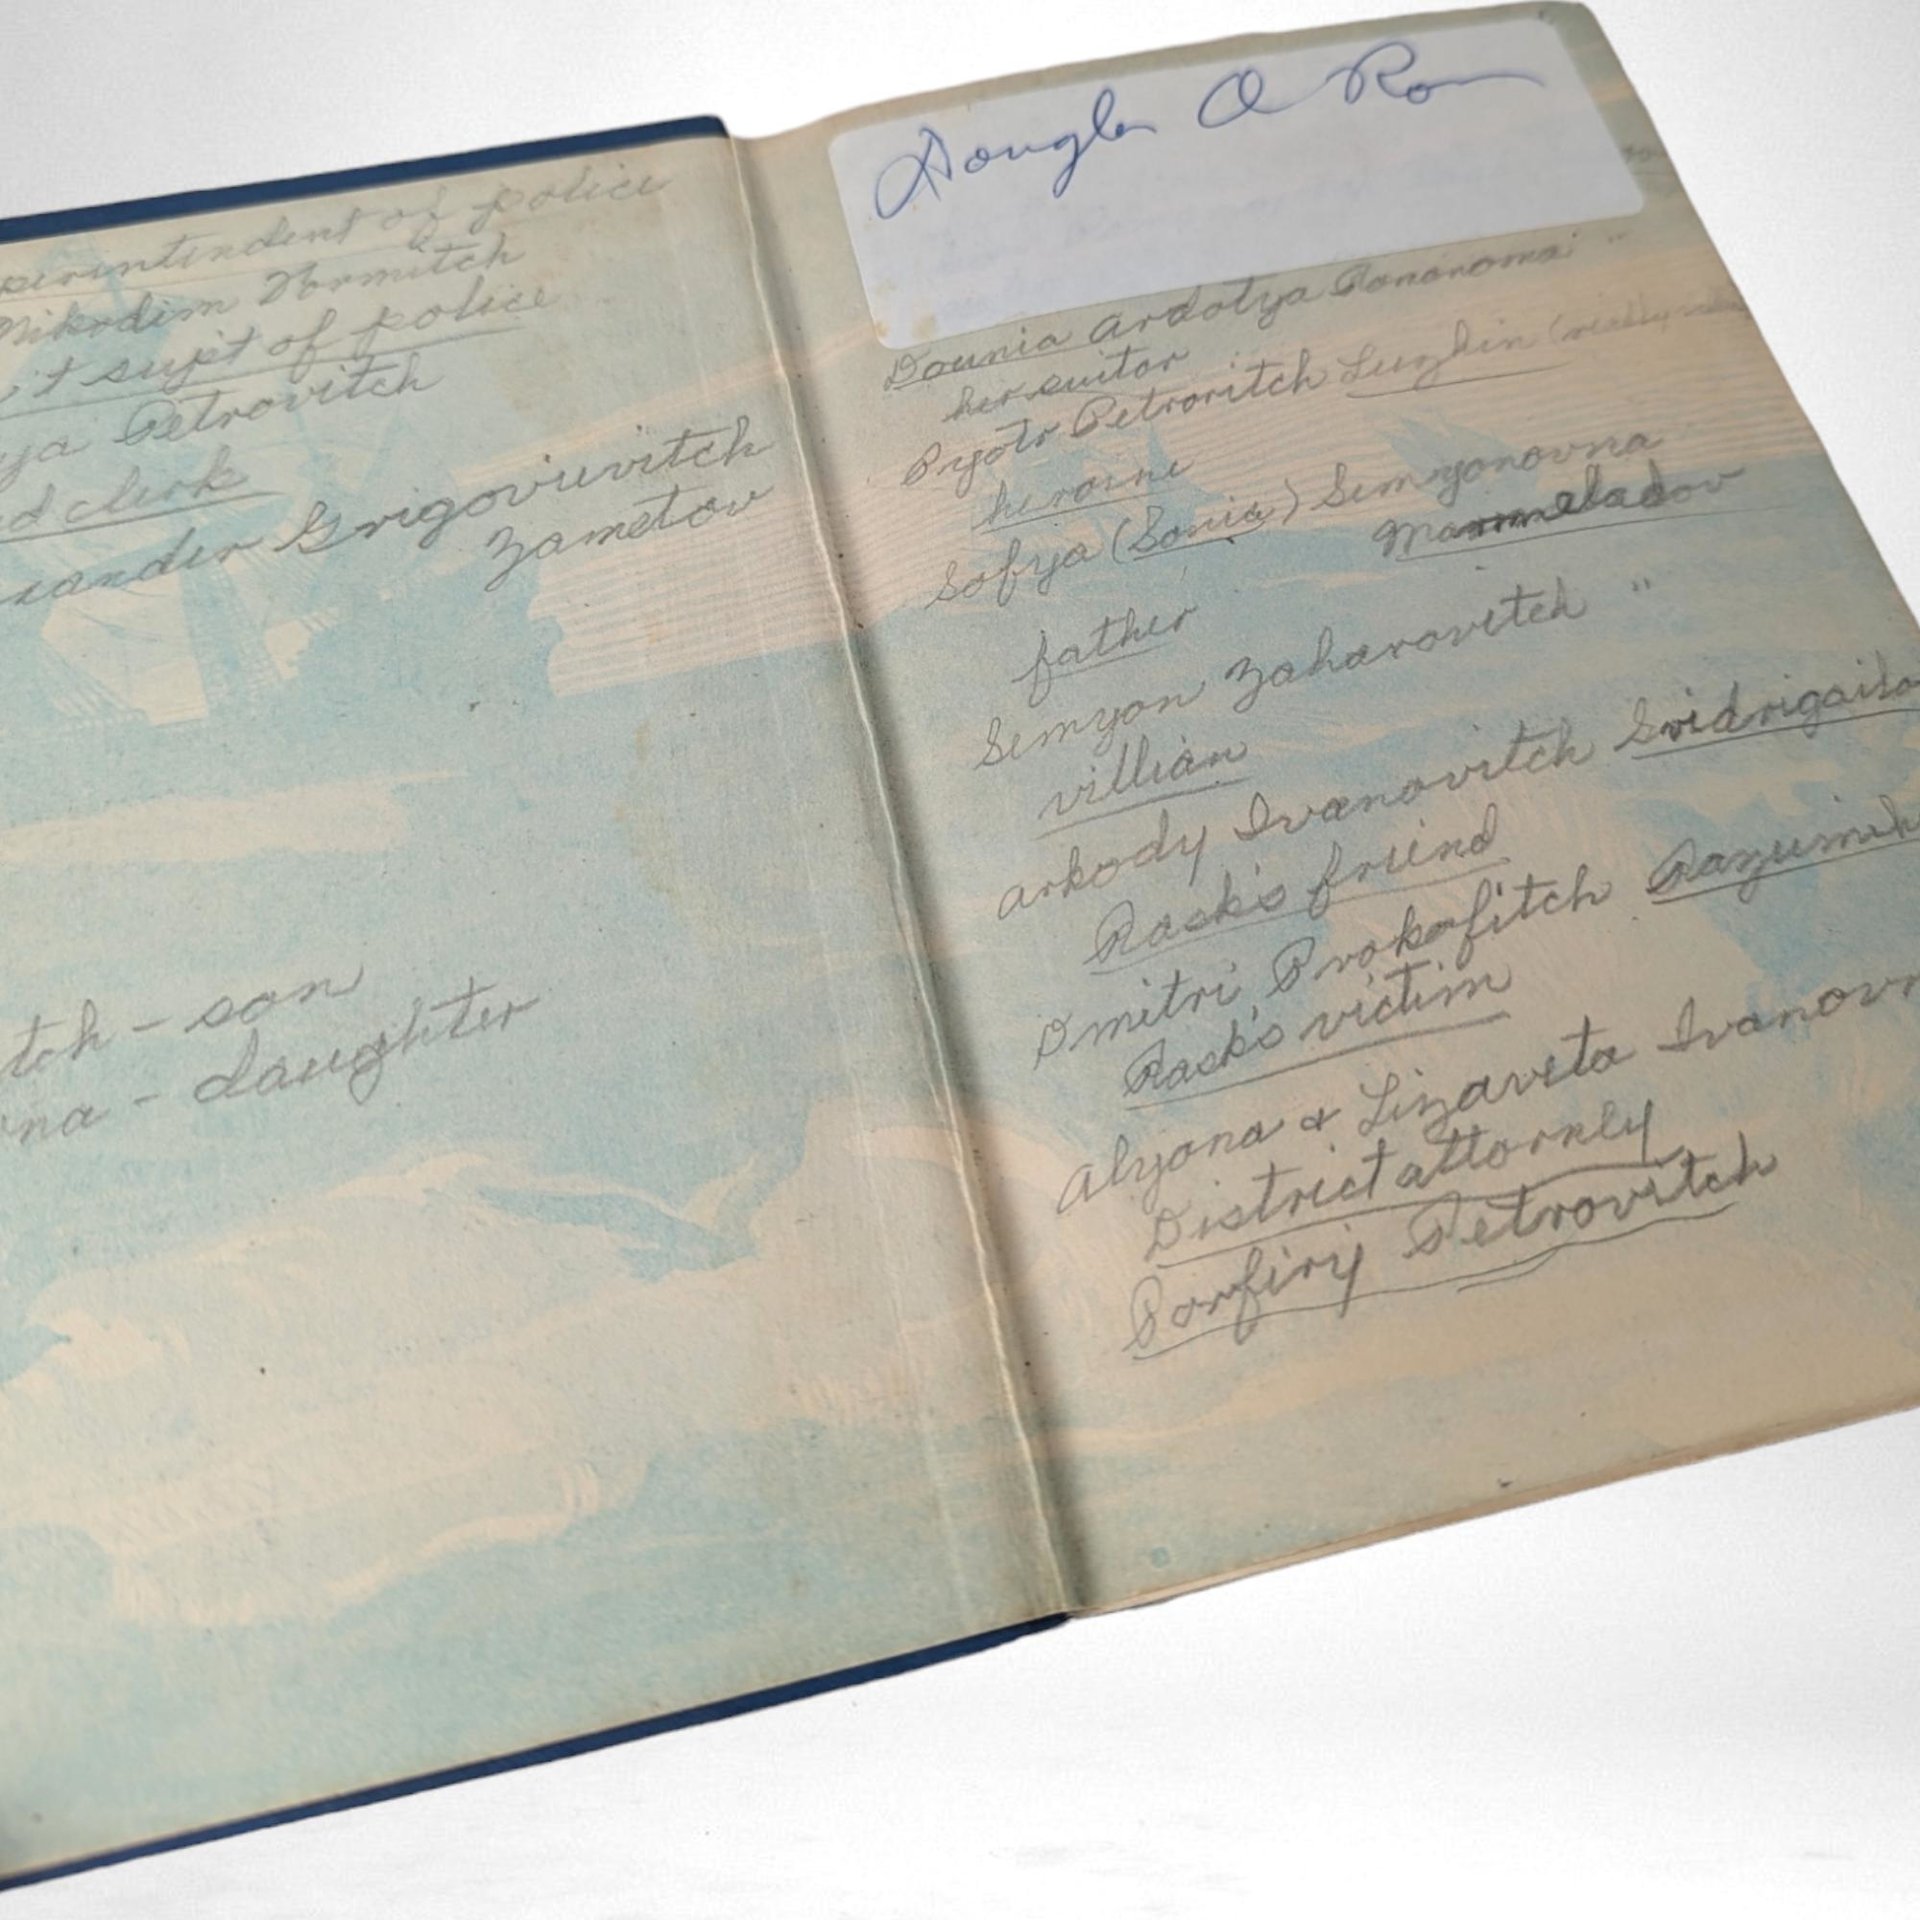 perintendent of police
Nikodim
't supt of police
ya Petrovitch
d clerk
xander Grigorievitch
Zametov
tch - son
na - daughter
Dounia Ardotya "
her suitor
Pyotr Petrovitch Luzhin (really
heroine
Sofya (Sonia) Semyonovna
Marmeladov
father
Semyon Zaharovitch "
villian
Arkody Ivanovitch Svidrigailo
Rask's friend
Dmitri Prokofitch Razumikh
Rask's victim
Alyona & Lizaveta Ivanovn
District attorney
Porfiriy Petrovitch